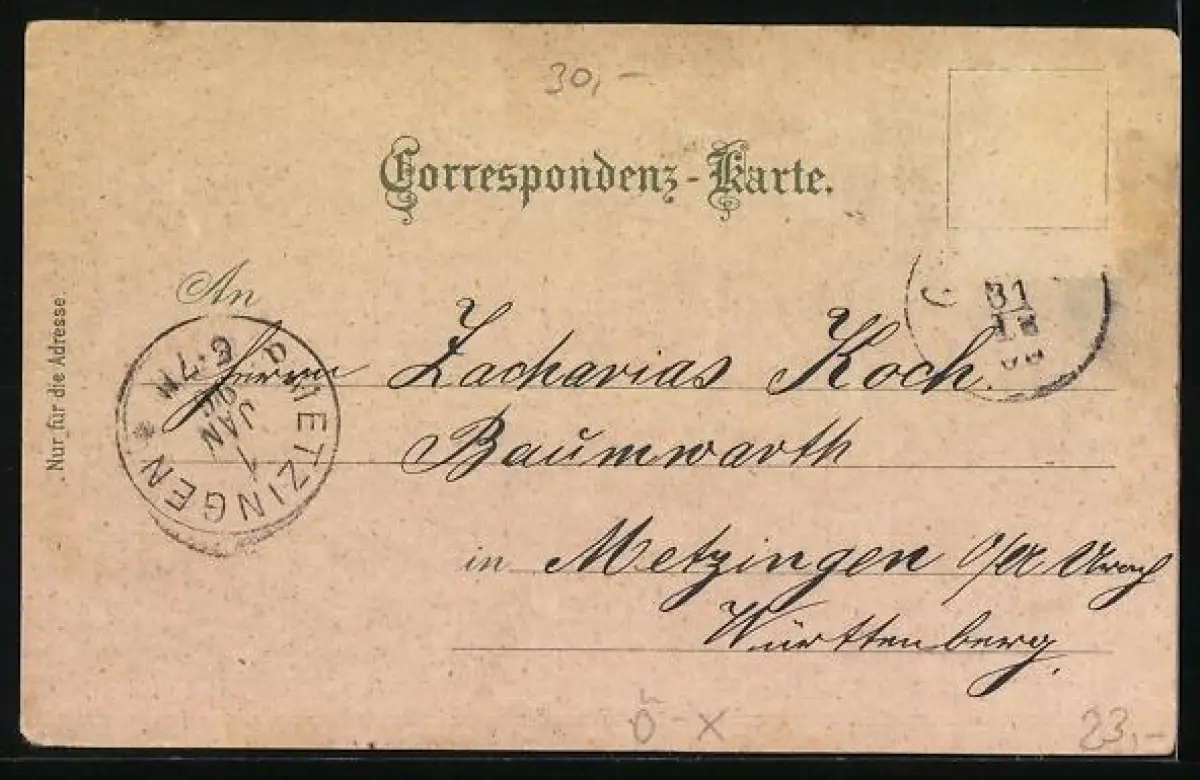 30,-
Correspondenz-Karte.
An
Nur für die Adresse.
Herrn Zacharias Koch.
Baumwarth
in Metzingen O/A Urach
Württemberg.
METZINGEN
1
JAN
6-7N
31
Ö - X
23,-